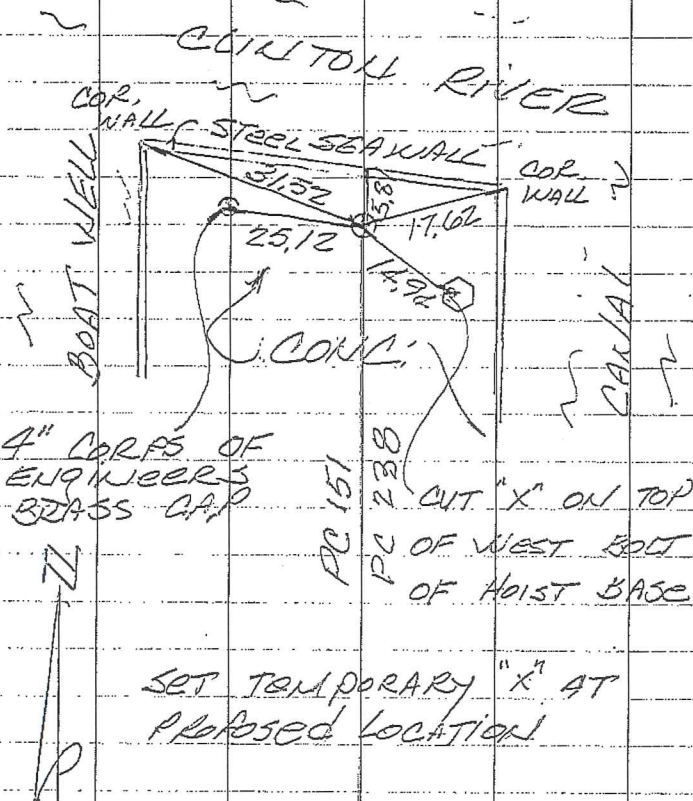 CLINTON RIVER
COR.
WALL
STEEL SEAWALL
COR.
WALL
BOAT WELL
31.52
5.8
17.62
25.12
14.92
CONC.
CANAL
4" CORPS OF
ENGINEERS
BRASS CAP
PC 151
PC 238
CUT "X" ON TOP
OF WEST BOLT
OF HOIST BASE
N
SET TEMPORARY "X" AT
PROPOSED LOCATION